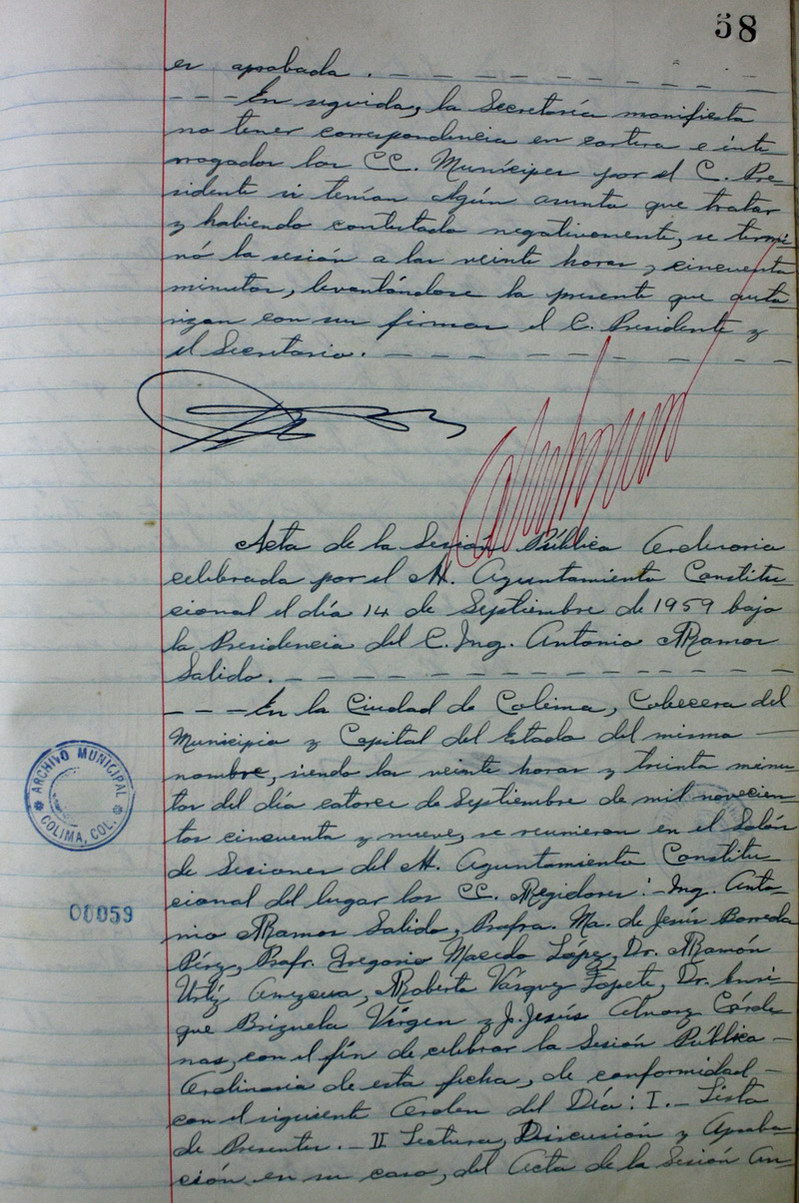 58
es aprobada. - - - - - - - - - - - -
- - - En seguida, la Secretaría manifiesta
no tener correspondencia en cartera e inte
rrogados los CC. Munícipes por el C. Pre-
sidente si tenían algún asunto que tratar
y habiendo contestado negativamente, se termi-
nó la sesión a las veinte horas y cincuenta
minutos, levantándose la presente que auto-
rizan con sus firmas el C. Presidente y
el Secretario. - - - - - - - - - - - -
Acta de la Sesión Pública Ordinaria
celebrada por el H. Ayuntamiento Constitu-
cional el día 14 de Septiembre de 1959 bajo
la Presidencia del C. Ing. Antonio Ramos
Salido. - - - - - - - - - - - - - - -
- - - En la Ciudad de Colima, Cabecera del
Municipio y Capital del Estado del mismo -
nombre, siendo las veinte horas y treinta minu-
tos del día catorce de Septiembre de mil novecien-
tos cincuenta y nueve, se reunieron en el Salón
de Sesiones del H. Ayuntamiento Constitu-
cional del lugar los CC. Regidores: - Ing. Anto-
nio Ramos Salido, Profra. Ma. de Jesús Barreda
Pérez, Profr. Gregorio Macedo López, Dr. Ramón
Urtiz Amezcua, Roberto Vásquez Dr. Enri-
que Brizuela Virgen y J. Jesús Alvarez Cárde-
nas, con el fin de celebrar la Sesión Pública -
Ordinaria de esta fecha, de conformidad -
con el siguiente Orden del Día: I. - Lista
de Presentes. - II Lectura, Discusión y Aproba-
ción en su caso, del Acta de la Sesión An-
ARCHIVO MUNICIPAL
COLIMA, COL.
00059